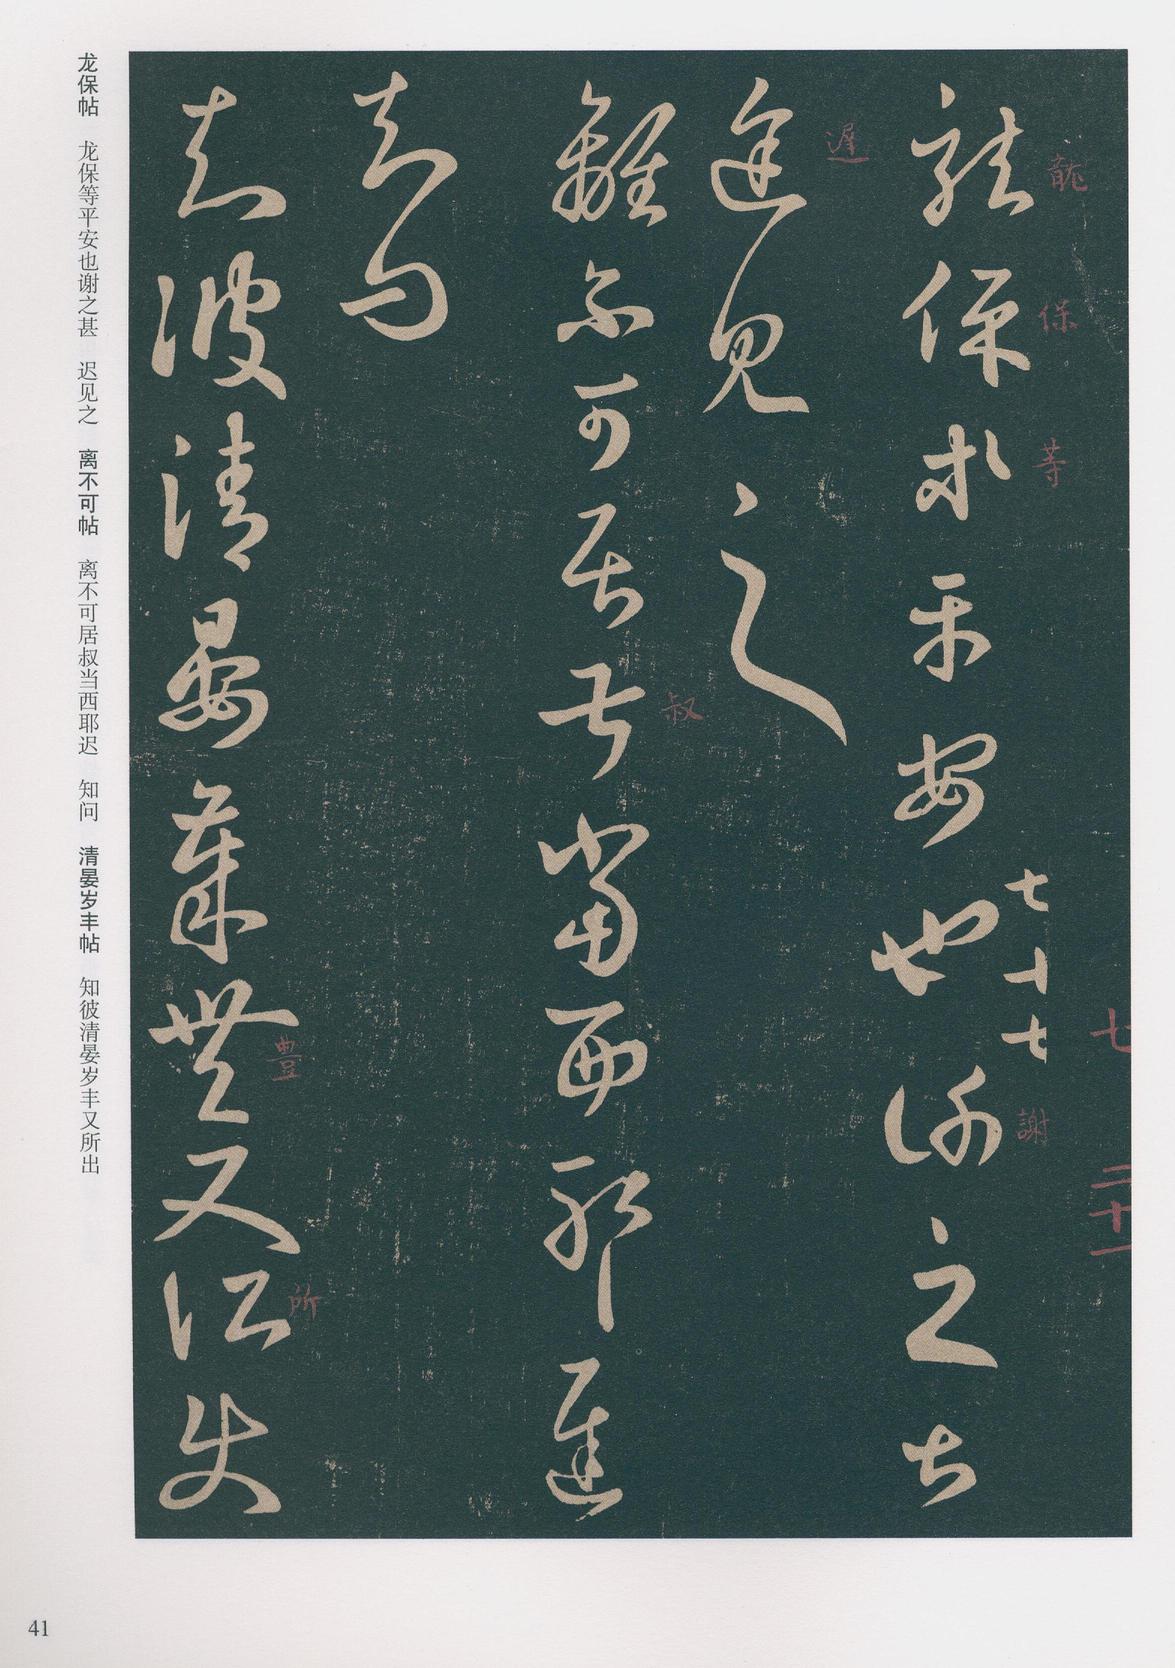 七
二十一
龍
保
等
謝
七十七
龍保等平安也謝之甚
遲
遲見之
叔
離不可居叔當西耶遲
知問
豊
所
知彼清晏歲豐又所出
龙保帖　龙保等平安也谢之甚　迟见之　离不可帖　离不可居叔当西耶迟　知问　清晏岁丰帖　知彼清晏岁丰又所出
41